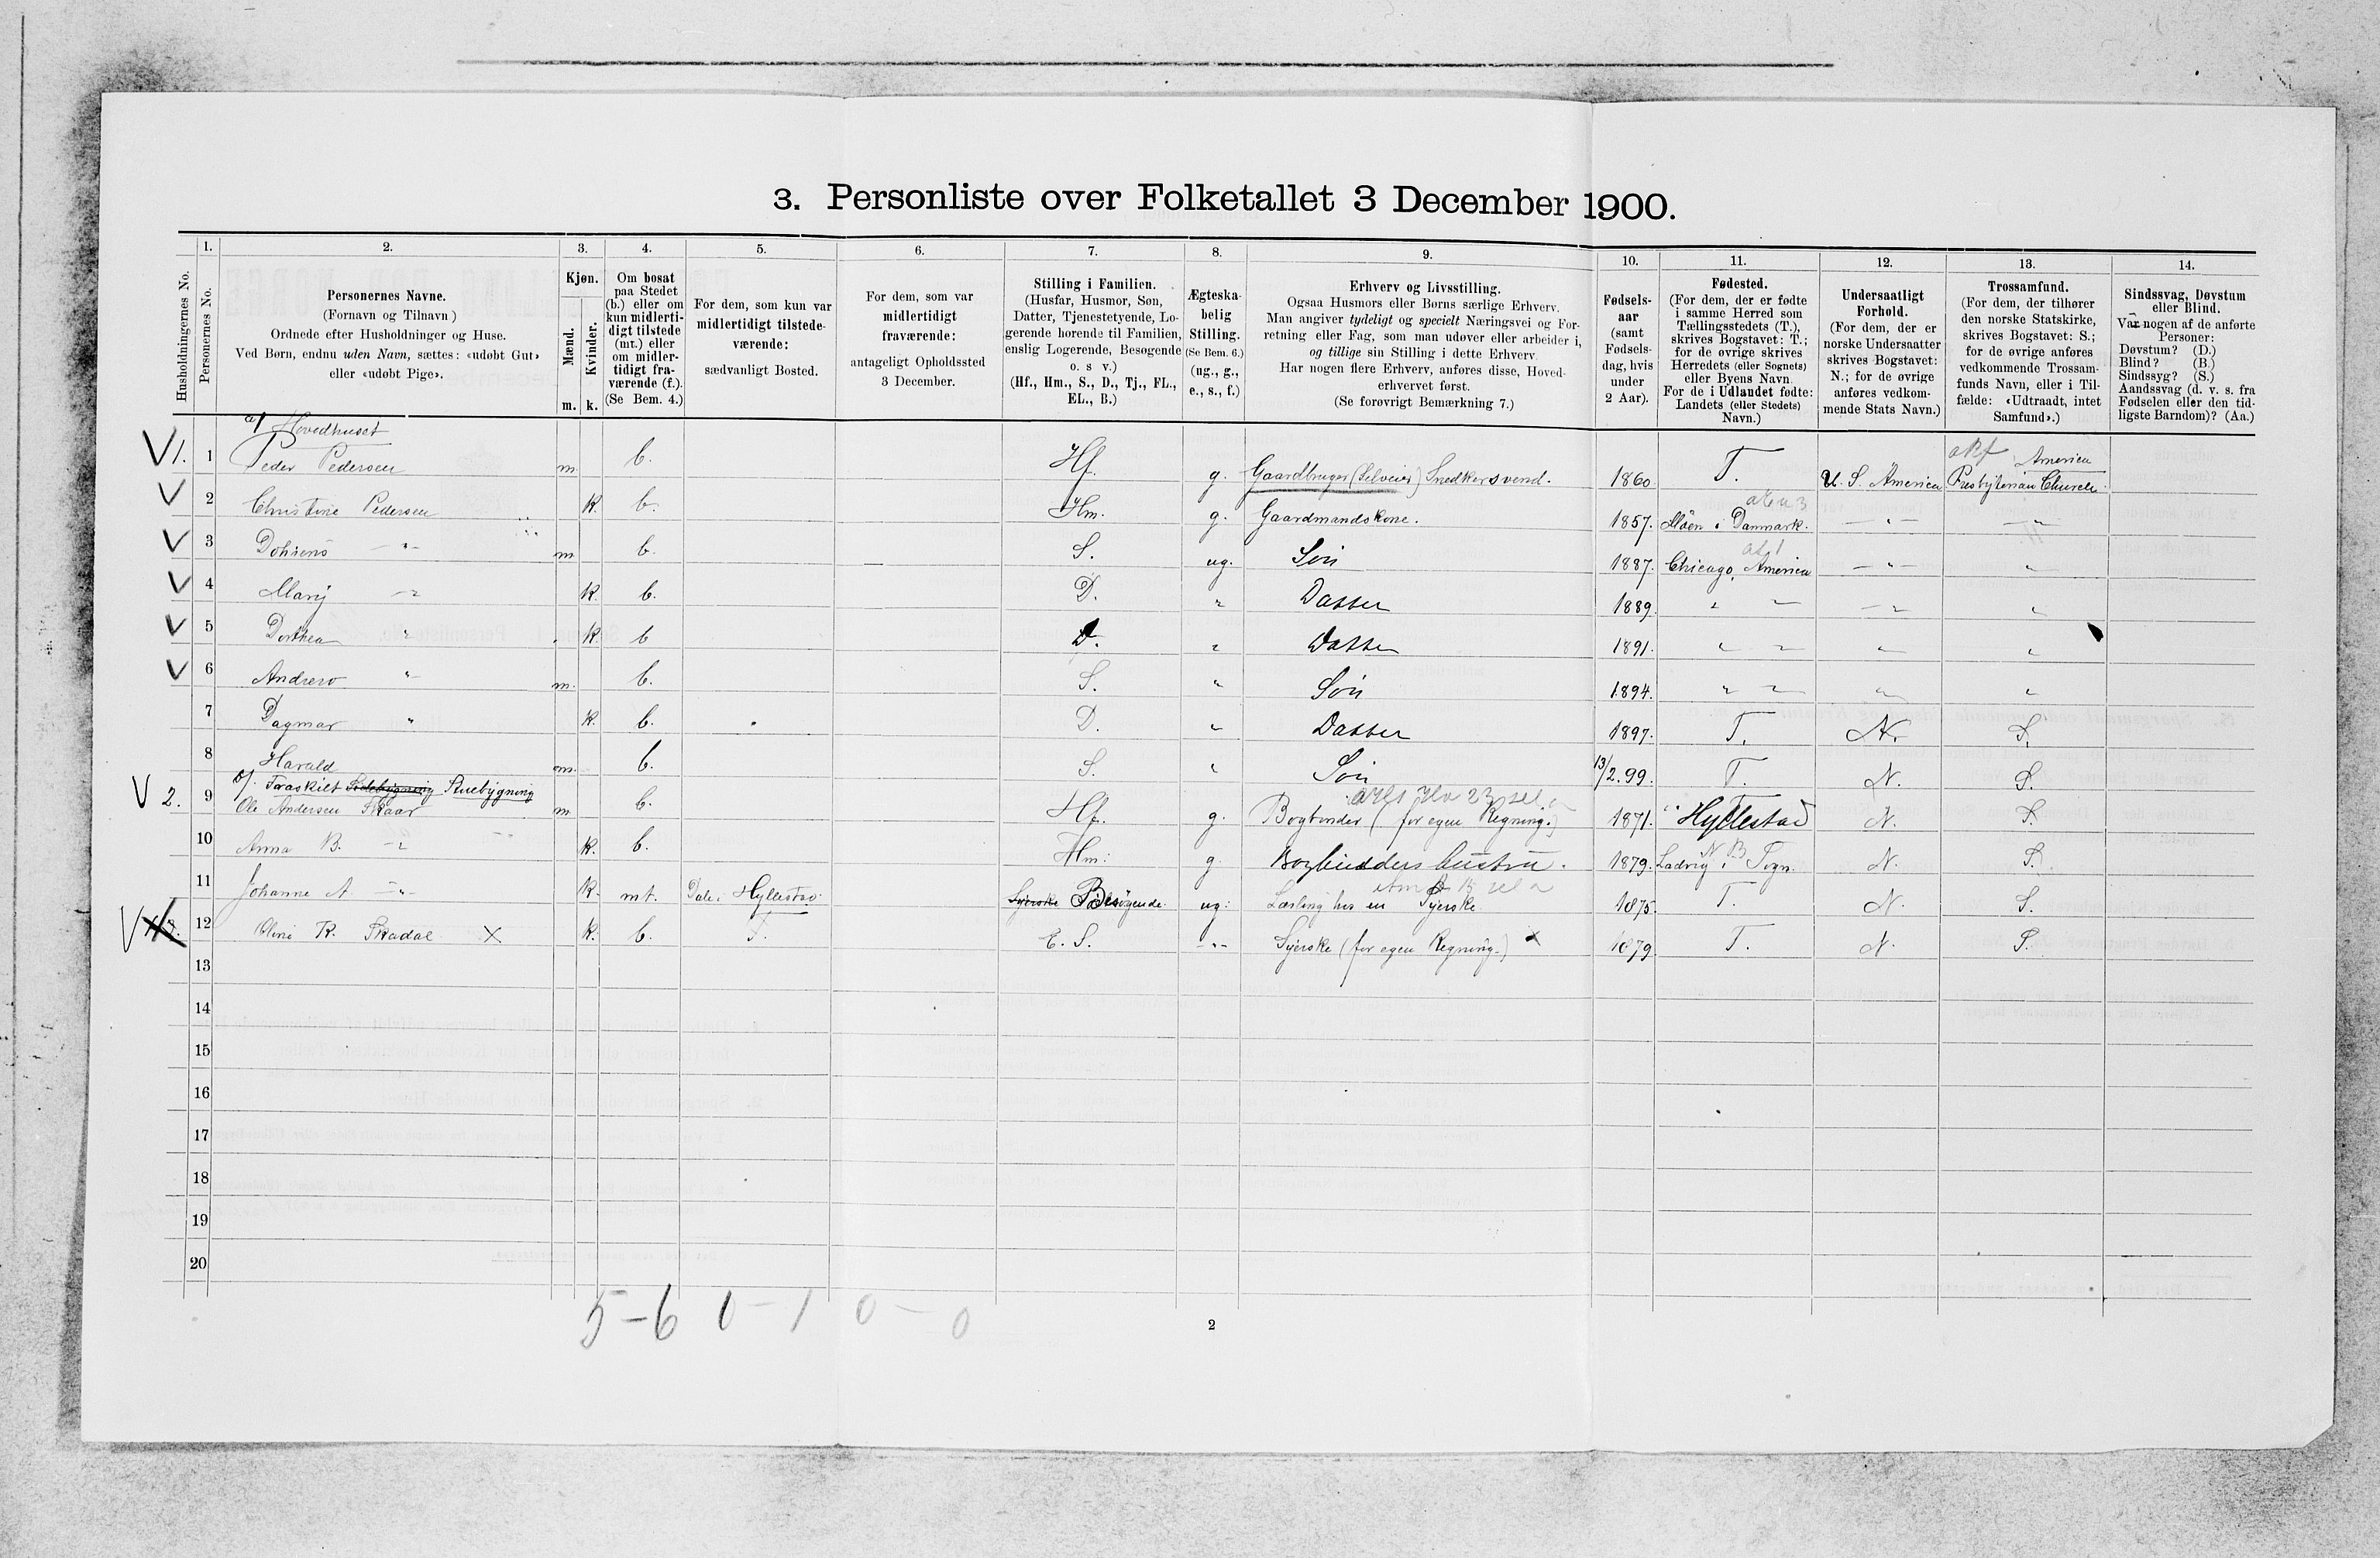 3. Personliste over Folketallet 3 December 1900.
1. 2. 3. 4. 5. 6. 7. 8. 9. 10. 11. 12. 13. 14.
Husholdningernes No.
Personernes No.
Personernes Navne.
(Fornavn og Tilnavn)
Ordnede efter Husholdninger og Huse.
Ved Børn, endnu uden Navn, sættes: «udøbt Gut»
eller «udøbt Pige».
Kjøn.
Mænd.
Kvinder.
m. k.
Om bosat
paa Stedet
(b.) eller om
kun midlerti-
digt tilstede
(mt.) eller
om midler-
tidigt fra-
værende (f.).
(Se Bem. 4.)
For dem, som kun var
midlertidigt tilstede-
værende:
sædvanligt Bosted.
For dem, som var
midlertidigt
fraværende:
antageligt Opholdssted
3 December.
Stilling i Familien.
(Husfar, Husmor, Søn,
Datter, Tjenestetyende, Lo-
gerende hørende til Familien,
enslig Logerende, Besøgende
o. s v.)
(Hf., Hm., S., D., Tj., FL.,
EL., B.)
Ægteska-
belig
Stilling.
(Se Bem. 6.)
(ug., g.,
e., s., f.)
Erhverv og Livsstilling.
Ogsaa Husmors eller Børns særlige Erhverv.
Man angiver tydeligt og specielt Næringsvei og For-
retning eller Fag, som man udøver eller arbeider i,
og tillige sin Stilling i dette Erhverv.
Har nogen flere Erhverv, anføres disse, Hoved-
erhvervet først.
(Se forøvrigt Bemærkning 7.)
Fødsels-
aar
(samt
Fødsels-
dag, hvis
under
2 Aar).
Fødested.
(For dem, der er fødte
i samme Herred som
Tællingsstedets (T.),
skrives Bogstavet: T.;
for de øvrige skrives
Herredets (eller Sognets)
eller Byens Navn.
For de i Udlandet fødte:
Landets (eller Stedets)
Navn.)
Undersaatligt
Forhold.
(For dem, der er
norske Undersaatter
skrives Bogstavet:
N.; for de øvrige
anføres vedkom-
mende Stats Navn.)
Trossamfund.
(For dem, der tilhører
den norske Statskirke,
skrives Bogstavet: S.;
for de øvrige anføres
vedkommende Trossam-
funds Navn, eller i Til-
fælde: «Udtraadt, intet
Samfund».)
Sindssvag, Døvstum
eller Blind.
Var nogen af de anførte
Personer:
Døvstum? (D.)
Blind? (B.)
Sindssyg? (S.)
Aandssvag (d. v. s. fra
Fødselen eller den tid-
ligste Barndom)? (Aa.)
a/ Hovedhuset
V 1. 1 Peder Pedersen m b. Hf. g. Gaardbruger (Selveier) Snedkersvend. 1860 T. U. S. America America Presbyterian Church
V 2 Christine Pedersen k. b. Hm. g. Gaardmandskone. 1857. Möen i Danmark. — " — — " —
V 3 — " — m b. S. ug. Sön 1887. Chicago, America — " — "
V 4 Marij — " k. b. D. " Datter 1889. " " — " "
V 5 Dorthea " k. b D. " Datter 1891. " " " "
V 6 Andrew " m. b. S. " Sön 1894. " " " "
7 Dagmar " k. b. D. " Datter 1897. T. N. S.
8 Harald m. b. S. " Sön 13/2.99. T. N. S.
b/. Fraskilt Sidebygning Stuebygning
V 2. 9 Ole Andersen Skaar m b. Hf. g. Bogbinder (for egen Regning.) 1871. Hyllestad N. S.
10 Anna B. — " k. b. Hm. g. Bogbindders hustru. 1879. Ladvig i Sogn. N. S.
11 Johanne A. — " — k. mt. Dale i Hyllestad. Syerske Besøgende. ug. Lærling hos en Syerske 1875. T. N. S.
V 12 Oline K. Skadal X k. b. E. S. — " — Syerske (for egen Regning.) X 1879 T. N. S.
13
14
15
16
17
18
19
20
5 – 6 0 – 1 0 – 0
2